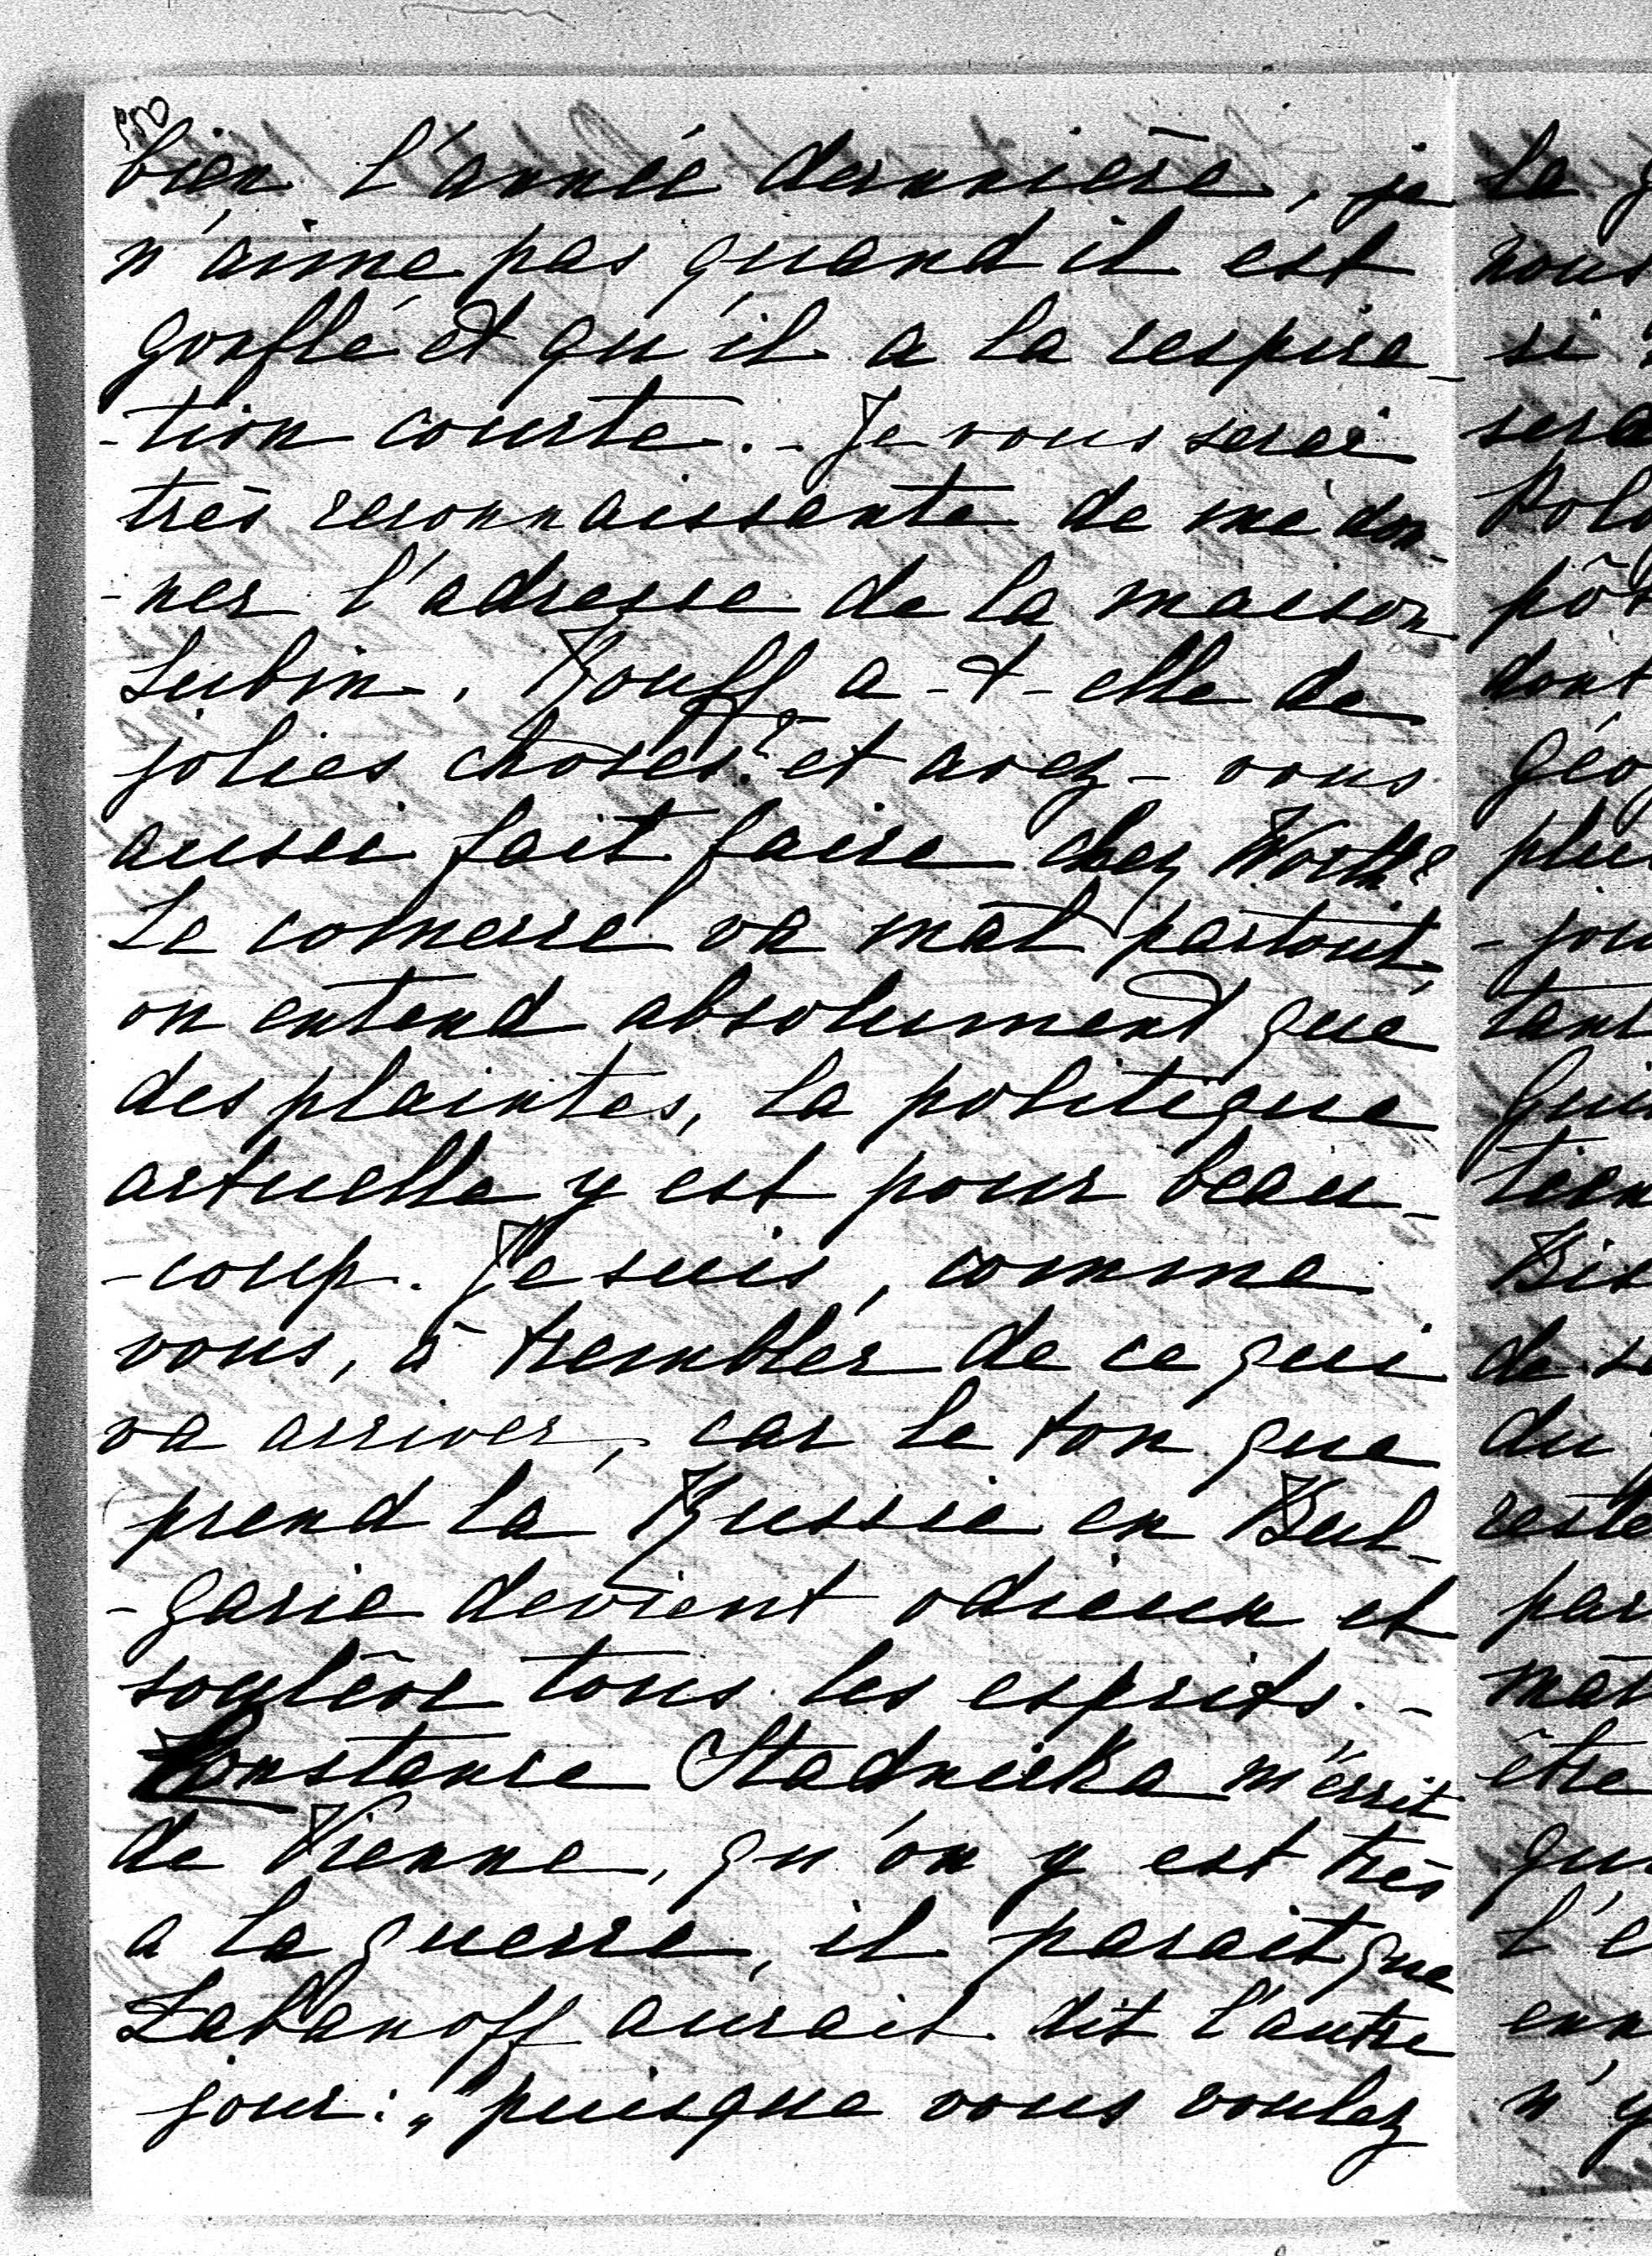 bien l'année dernnière, je
n'aime pas quand il est
gonflé et qu'il a la respira-
-tion courte. - Je vous serai
très reconnaissante de me don-
-ner l'adresse de la maison
Lubin. Rouff a-t-elle de
jolies choses? et avez-vous
aussi fait faire chez Worth?
Le comerce va mal partout,
on entend absolument que
des plaintes, la politique
actuelle y est pour beau-
-coup. Je suis, comme
vous, à trembler de ce qui
va arriver, car le ton que
prend la Russie en Bul-
-garie devient odieux et
soulève tous les esprits. -
Constance Stadnicka m'écrit
de Vienne, qu'on y est très
a la guerre, il parait que
Labanoff aurait dit l'autre
jour: „puisque vous voulez
le
nous
si
sera
pô
dont
géo
plu
-jou
tant
qui
tien
Bis
de s
du
reste
par
mar
être
qu
l'e
enn
n'y